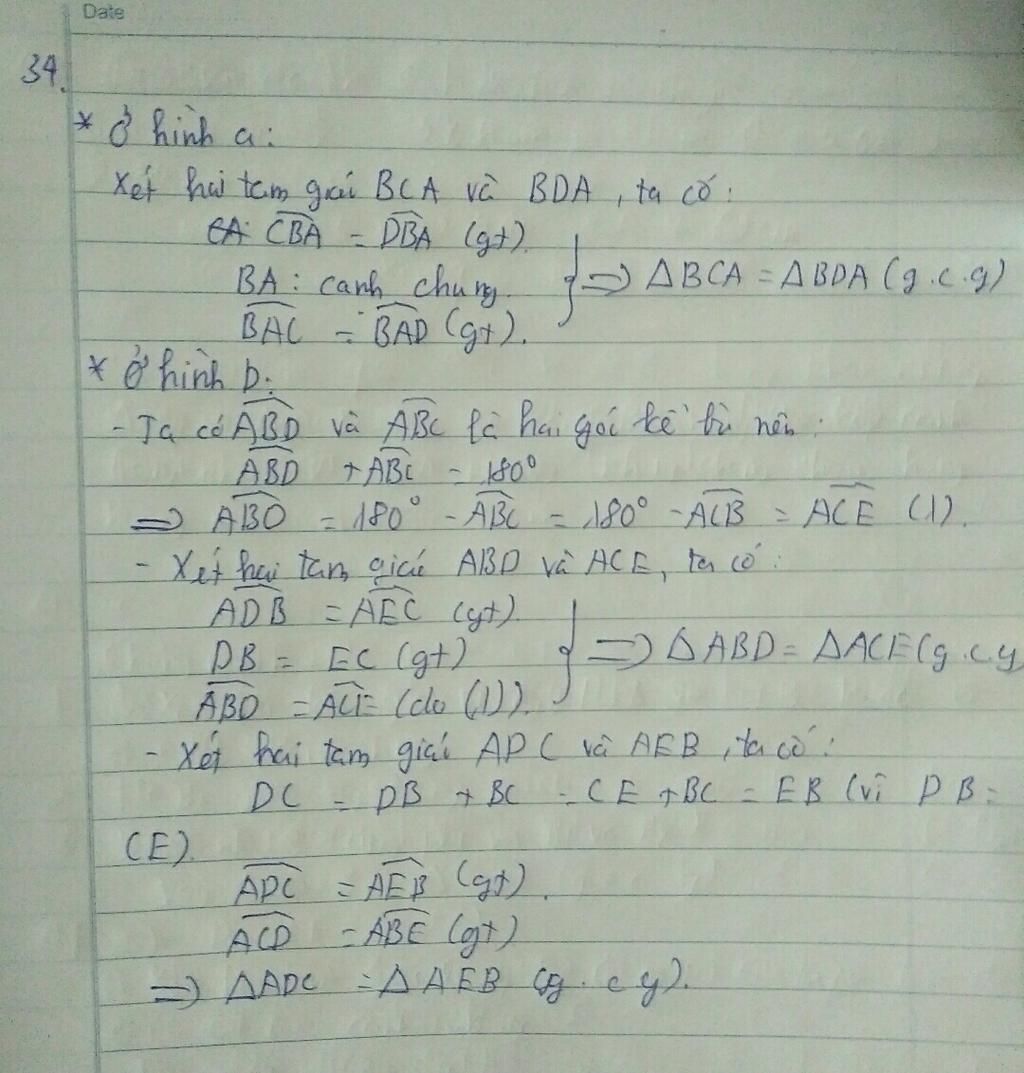 Date
34.
* Ở hình a:
Xét hai tam giác BCA và BDA, ta có:
CBA = DBA (gt).
BA: cạnh chung. } => ΔBCA = ΔBDA (g.c.g)
BAC = BAD (gt).
* Ở hình b:
- Ta có ABD và ABC là hai góc kề bù nên:
ABD + ABC = 180°
=> ABD = 180° - ABC = 180° - ACB = ACE (1).
- Xét hai tam giác ABD và ACE, ta có:
ADB = AEC (gt).
DB = EC (gt) } => ΔABD = ΔACE (g.c.g
ABD = ACE (do (1)).
- Xét hai tam giác ADC và AEB, ta có:
DC = DB + BC = CE + BC = EB (vì DB =
CE).
ADC = AEB (gt).
ACD = ABE (gt)
=> ΔADC = ΔAEB (g.c.g).